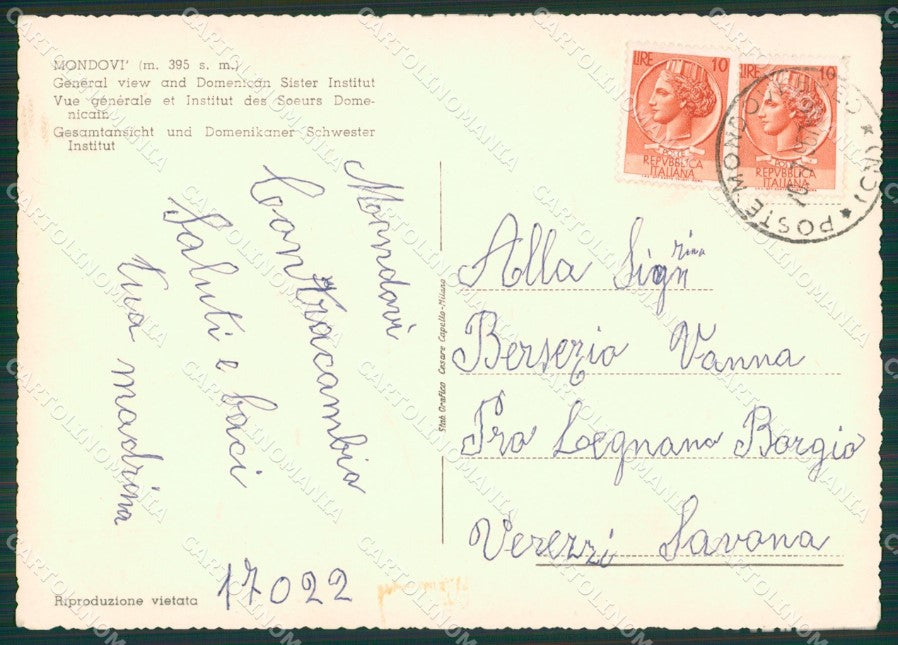 MONDOVI' (m. 395 s. m.)
General view and Domenican Sister Institut
Vue générale et Institut des Soeurs Dome-
nicain
Gesamtansicht und Domenikaner Schwester
Institut
LIRE 10
POSTE
REPVBBLICA
ITALIANA
LIRE 10
REPVBBLICA
ITALIANA
POSTE MONDOVI
(CN)
Mondovi
Contracambia
Saluti e baci
tua madrina
Stab. Grafico Cesare Capello-Milano
Alla Sign rina
Bersezio Vanna
Pra Legnano Borgio
Verezzi Savona
Riproduzione vietata
17022
CARTOLINOMANIA